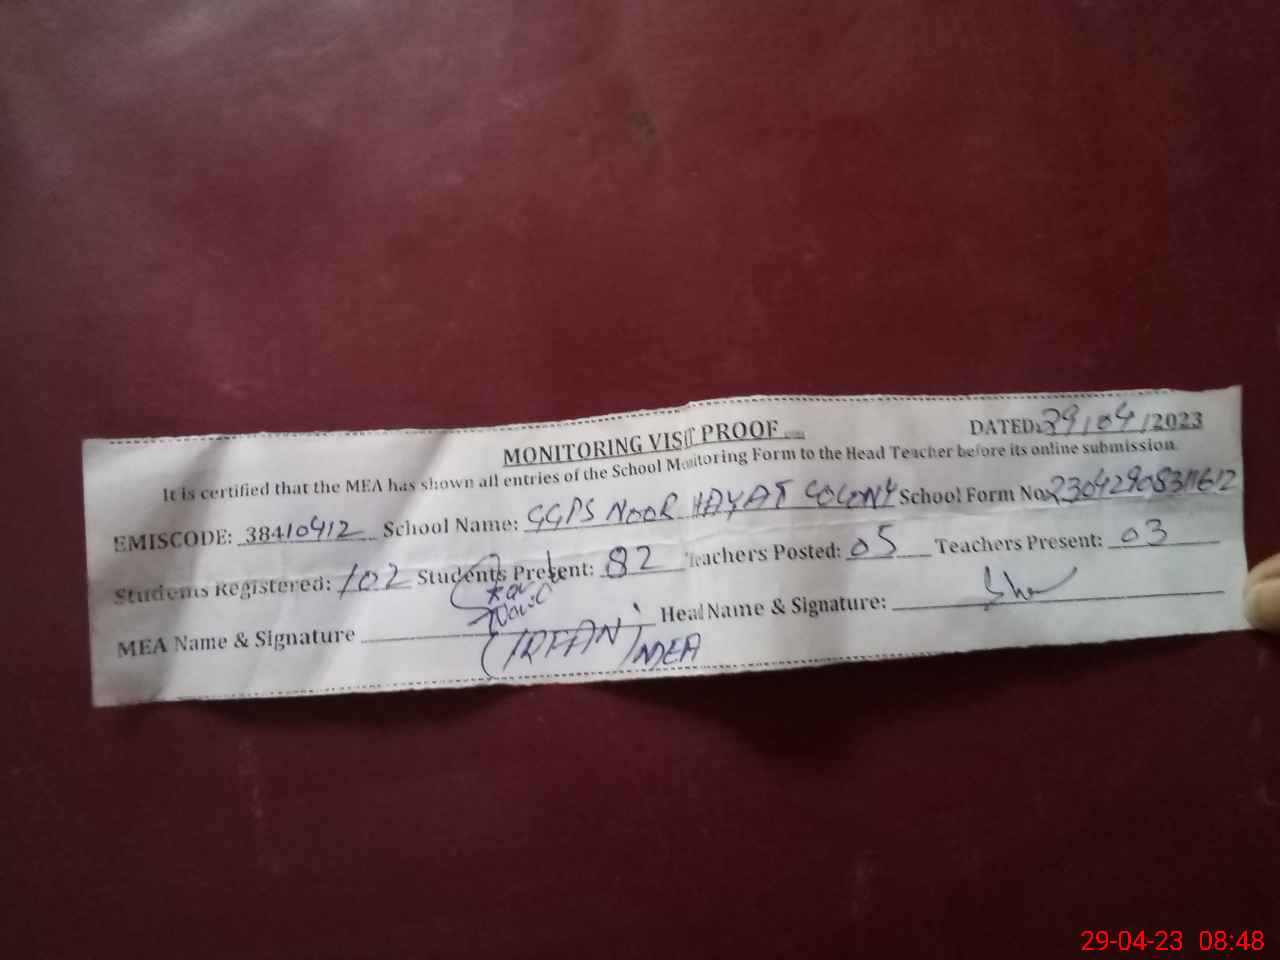 MONITORING VISIT PROOF
DATED: 29/04/2023
It is certified that the MEA has shown all entries of the School Monitoring Form to the Head Teacher before its online submission.
EMISCODE: 38410412 School Name: GGPS NOOR HAYAT COLONY School Form No.
Students Registered: 102 Students Present: 82 Teachers Posted: 05 Teachers Present: 03
MEA Name & Signature Head Name & Signature:
(IRFAN) MEA
29-04-23 08:48